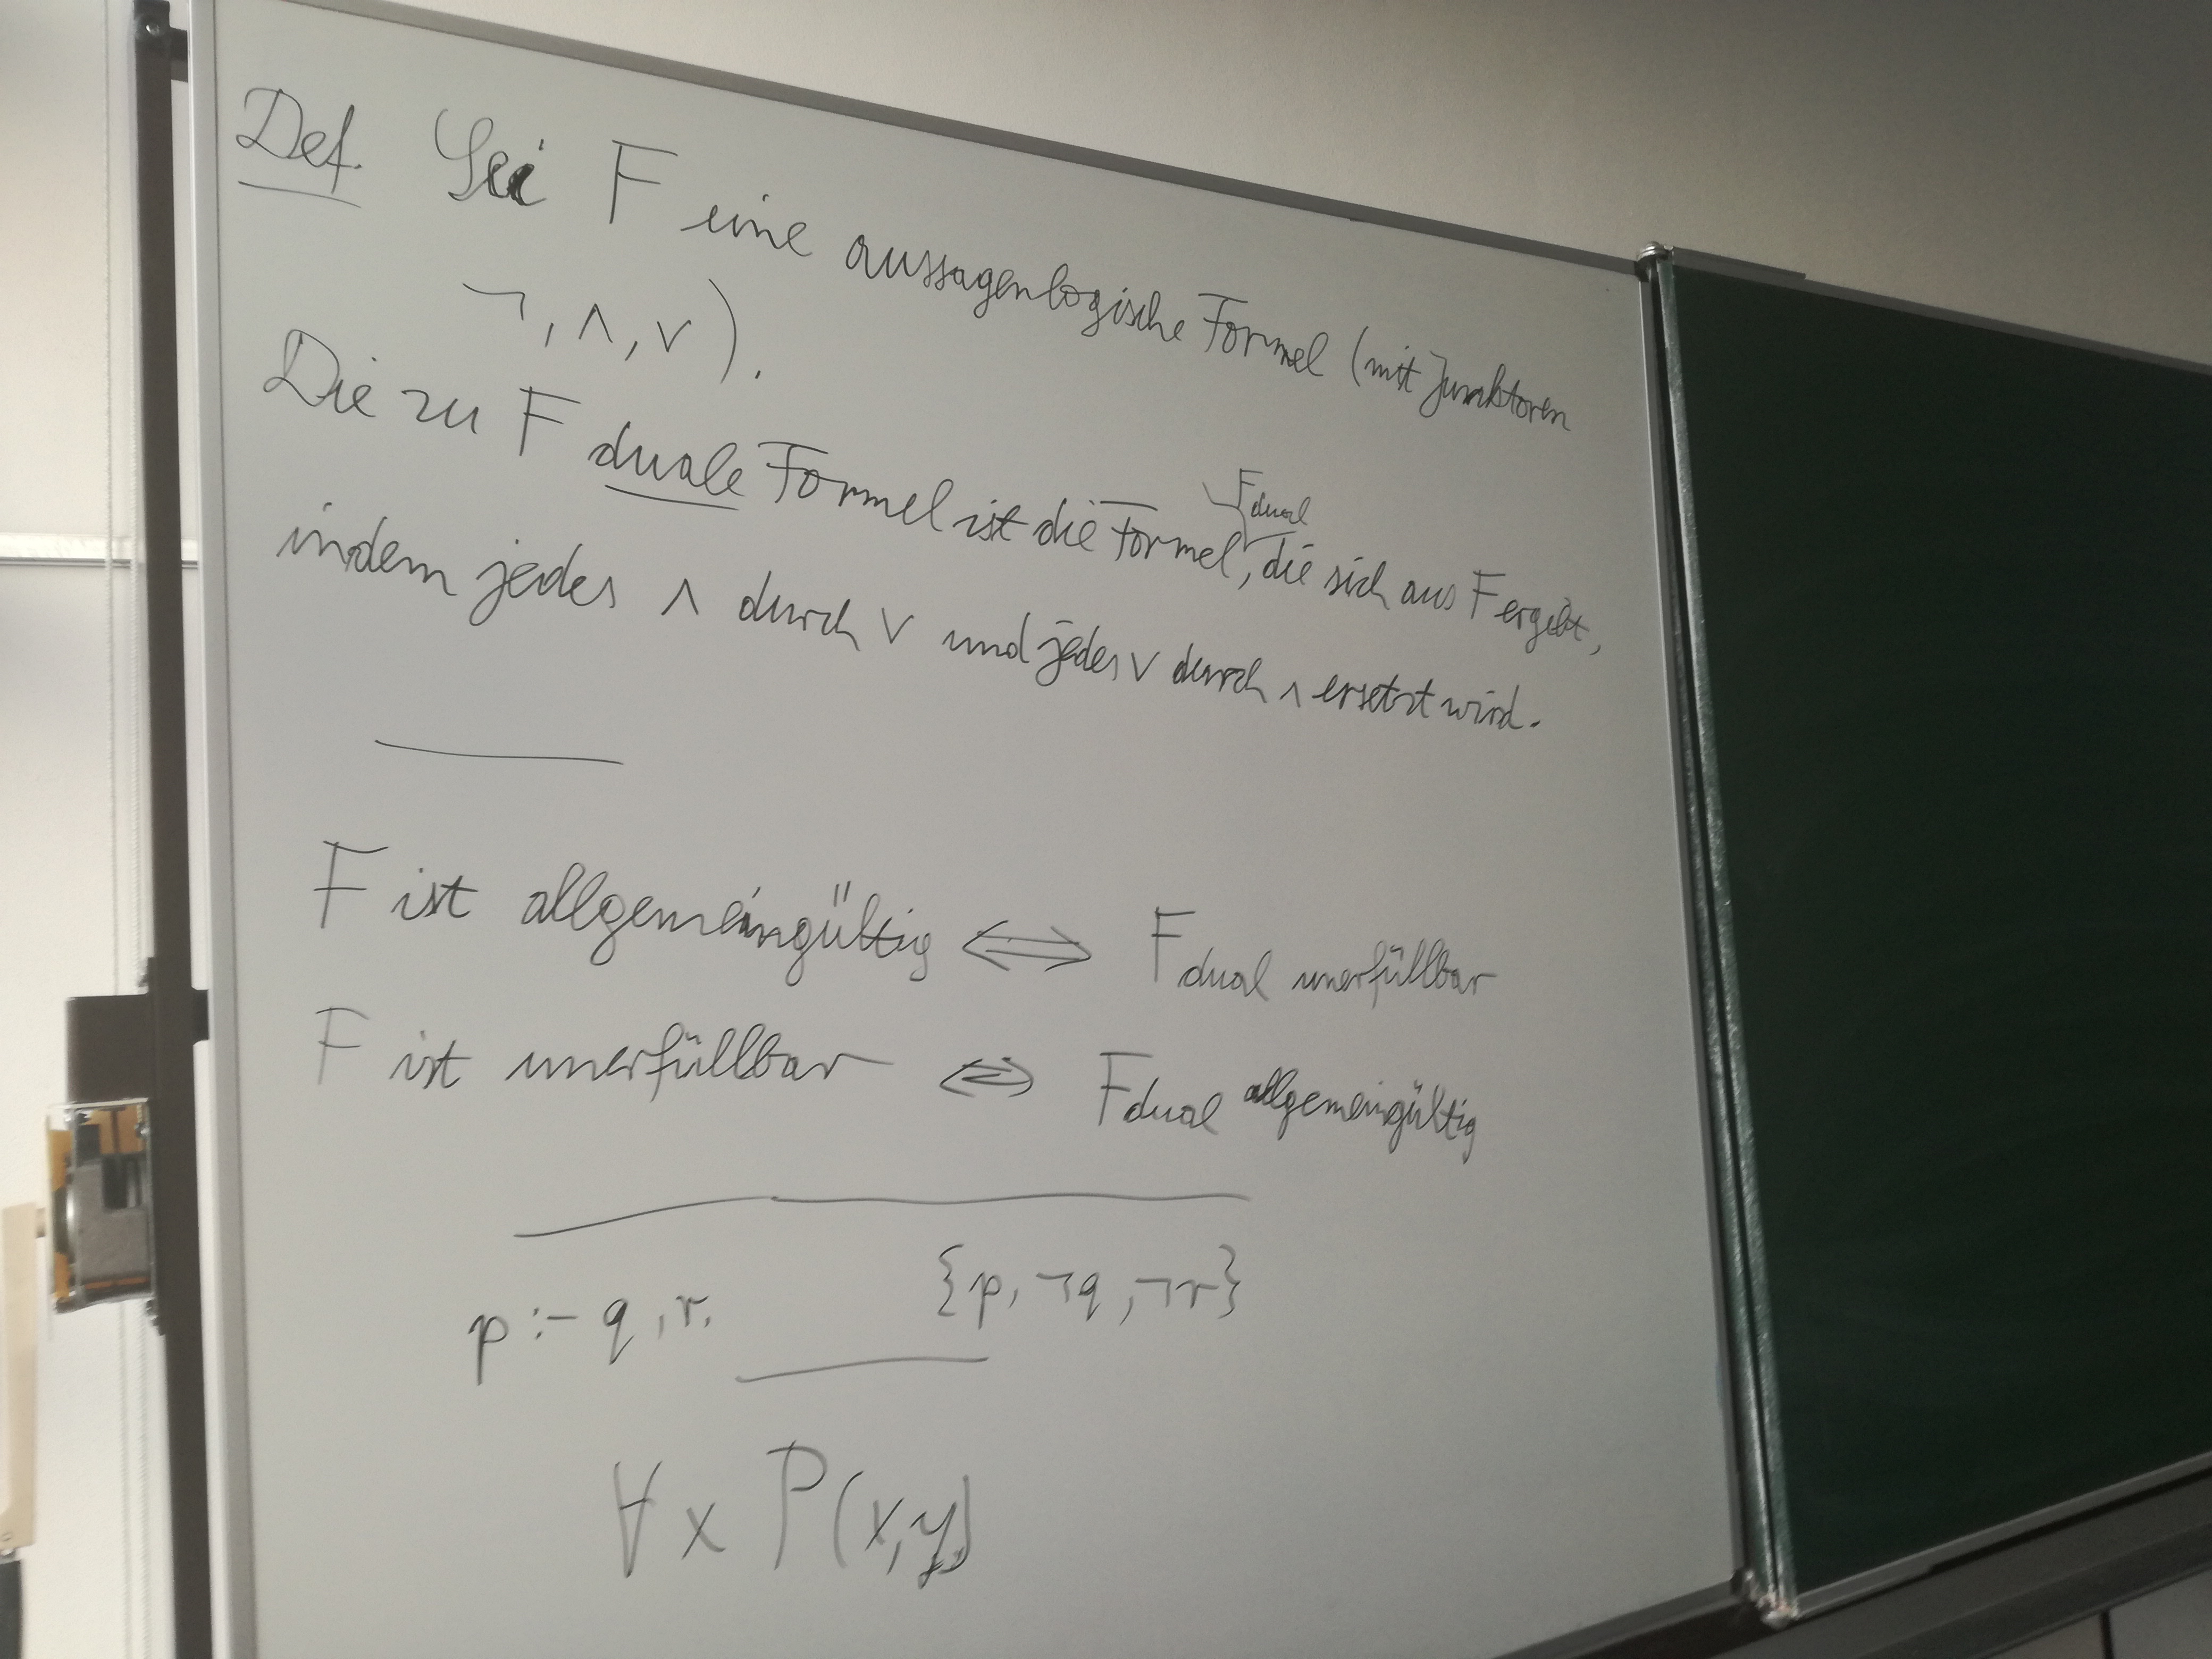 Def. Sei F eine aussagenlogische Formel (mit Junktoren
¬, ∧, ∨).
Die zu F duale Formel ist die Formel F dual, die sich aus F ergibt,
indem jedes ∧ durch ∨ und jedes ∨ durch ∧ ersetzt wird.
F ist allgemeingültig ⟺ F dual unerfüllbar
F ist unerfüllbar ⟺ F dual allgemeingültig
p :- q, r. {p, ¬q, ¬r}
∀x P(x,y)